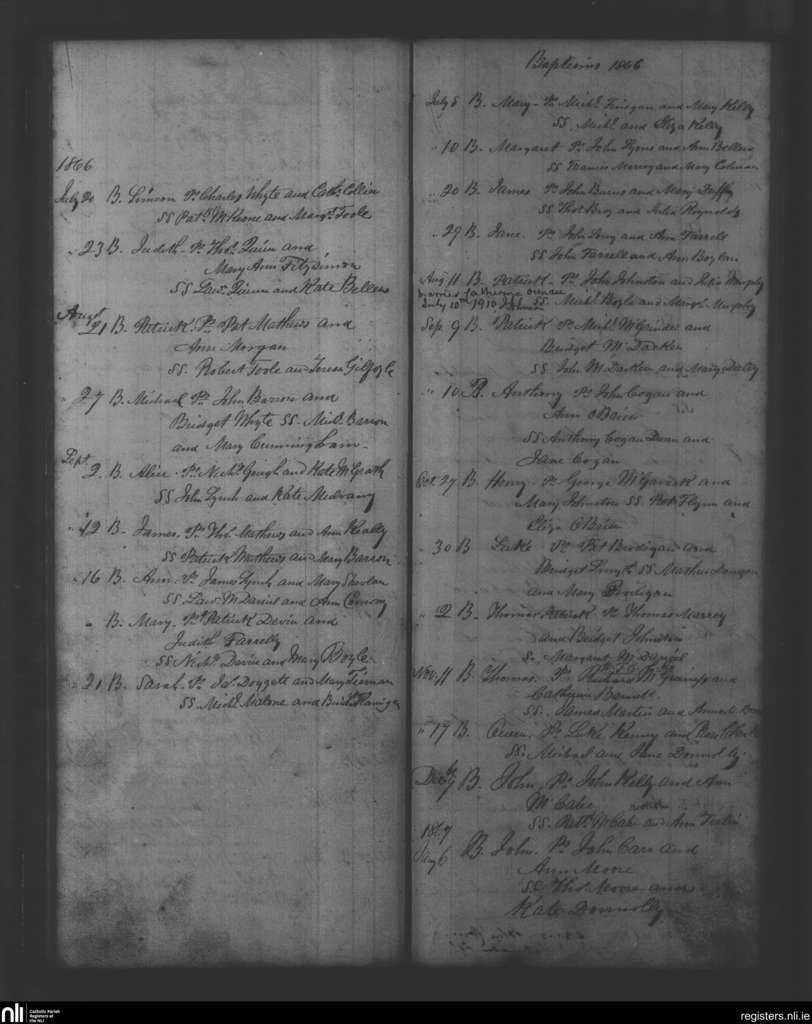 1866
July 20 B. Simon Ps. Charles Whyte and Cath. Collin
SS Pat. McKeone and Margt. Toole
" 23 B. Judith Ps. Thos. Quinn and
Mary Ann Fitzsimon
SS Law. Quinn and Kate Bellew
August
21 B. Patrick Ps. Pat Mathews and
Ann Morgan
SS. Robert Toole and Teresa Gilfoyle
27 B. Michael Ps. John Barron and
Bridget Whyte SS. Michl. Barron
and Mary Cunningham
Sept
2 B. Alice Ps. Nichs. Gough and Kate McGrath
SS John Lynch and Kate
" 12 B. James Ps. Thos. Mathews and Ann Really
SS Patrick Mathews and Mary Barron
" 16 B. Ann Ps. James Lynch and Mary
SS Law. McDaniel and Ann Conway
" B. Mary Ps. Patrick Devin and
Judith Farrelly
SS Nichs. Davin and Mary Boyle
" 21 B. Sarah Ps. Js. Doggett and Mary Tiernan
SS. Michl. Malone and
Baptisms 1866
July 5 B. Mary Ps. Michl. Finegan and Mary Kelly
SS. Michl. and Eliza Kelly
" 10 B. Margaret Ps. John Lyons and Ann Bellew
SS Francis and Mary Colman
" 20 B. James Ps. John Burns and Mary Taffe
SS Thos. and Julia Reynolds
" 29 B. Jane Ps. John and Ann Farrell
SS John Farrell and Ann Boylan
Aug 11 B. Patrick Ps. John Johnston and Julia Murphy
married Catherine
July 10th 1910 SS. Michl. Boyle and Margt. Murphy
Sep. 9 B. Patrick Ps. Michl. and
Bridget McDacken
SS. John McDacken and Mary Daly
" 10 B. Anthony Ps. John Cogan and
Ann OBrien
SS Anthony Cogan Dean and
Jane Cogan
Oct. 27 B Henry Ps. George McGaverk and
Mary Johnston SS Pat Flynn and
Eliza OBrien
" 30 B Luke Ps. Pat Brodigan and
Bridget Smyth SS Mathew
and Mary Brodigan
" 2 B. Thomas Patrick Ps. Thomas
and Bridget Johnston
S. Margaret McDaniel
Nov. 11 B. Thomas Ps. Richard and
Catherine Bennett
SS. James Martin and
" 17 B. Ps. Luke Kenny and
SS. Michael and Jane Donnolly
Dec 9 B. John Ps. John Kelly and Ann
McCabe
SS. Pat. McCabe and Ann
1867
Jany 6 B. John. Ps. John Carr and
Ann Moore
SS. Thos. Moore and
Kate Donnolly
nli Catholic Parish
Registers at
the NLI
registers.nli.ie